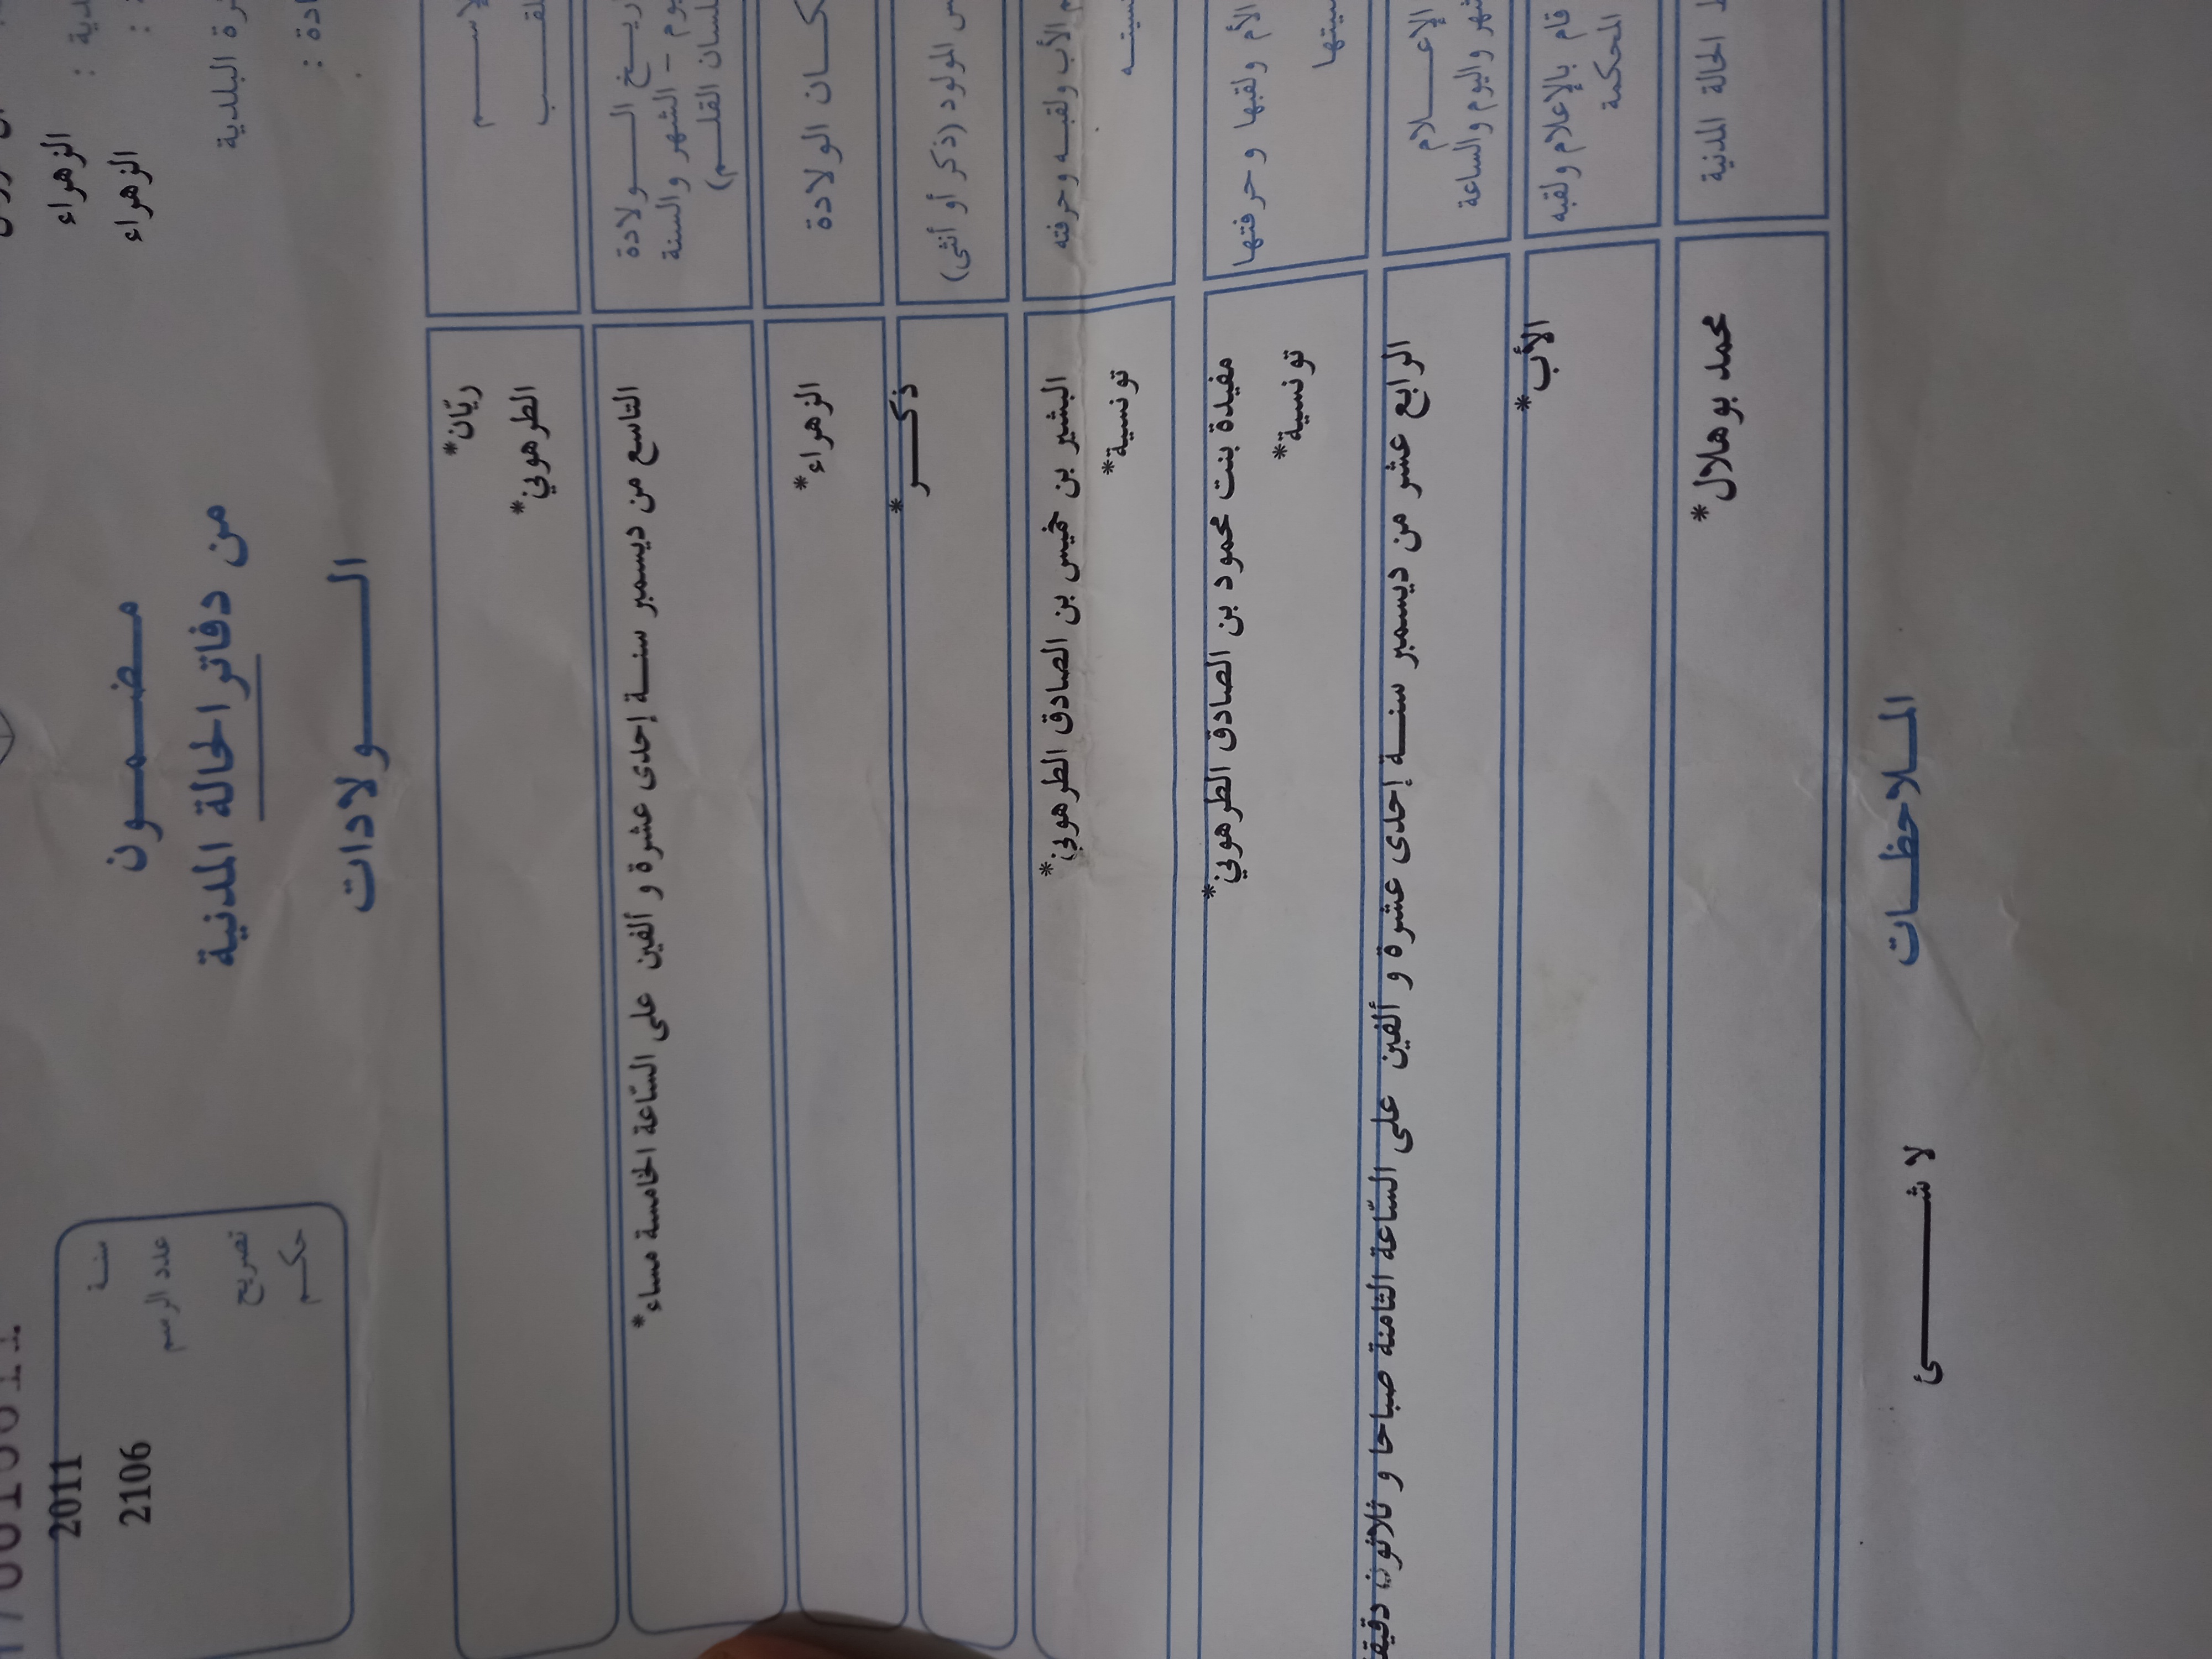 الزهراء
: الزهراء
سنة 2011
عدد الرسم 2106
تصريح
حكم
مضمون
من دفاتر الحالة المدنية
الولادات
ريّان*
الطرهوني*
الولادة
التاسع من ديسمبر سنة إحدى عشرة و ألفين على السّاعة الخامسة مساء*
الشهر والسنة
القلم)
الولادة الزهراء*
المولود (ذكر أو أنثى) ذكر*
الأب ولقبه وحرفته البشير بن خميس بن الصادق الطرهوني*
تونسية*
الأم ولقبها وحرفتها مفيدة بنت محمود بن الصادق الطرهوني*
تونسية*
الإعلام الرابع عشر من ديسمبر سنة إحدى عشرة و ألفين على السّاعة الثامنة صباحا و ثلاثون
واليوم والساعة
قام بالإعلام ولقبه الأب*
المحكمة
الحالة المدنية محمد بوهلال*
الملاحظات
لا شئ